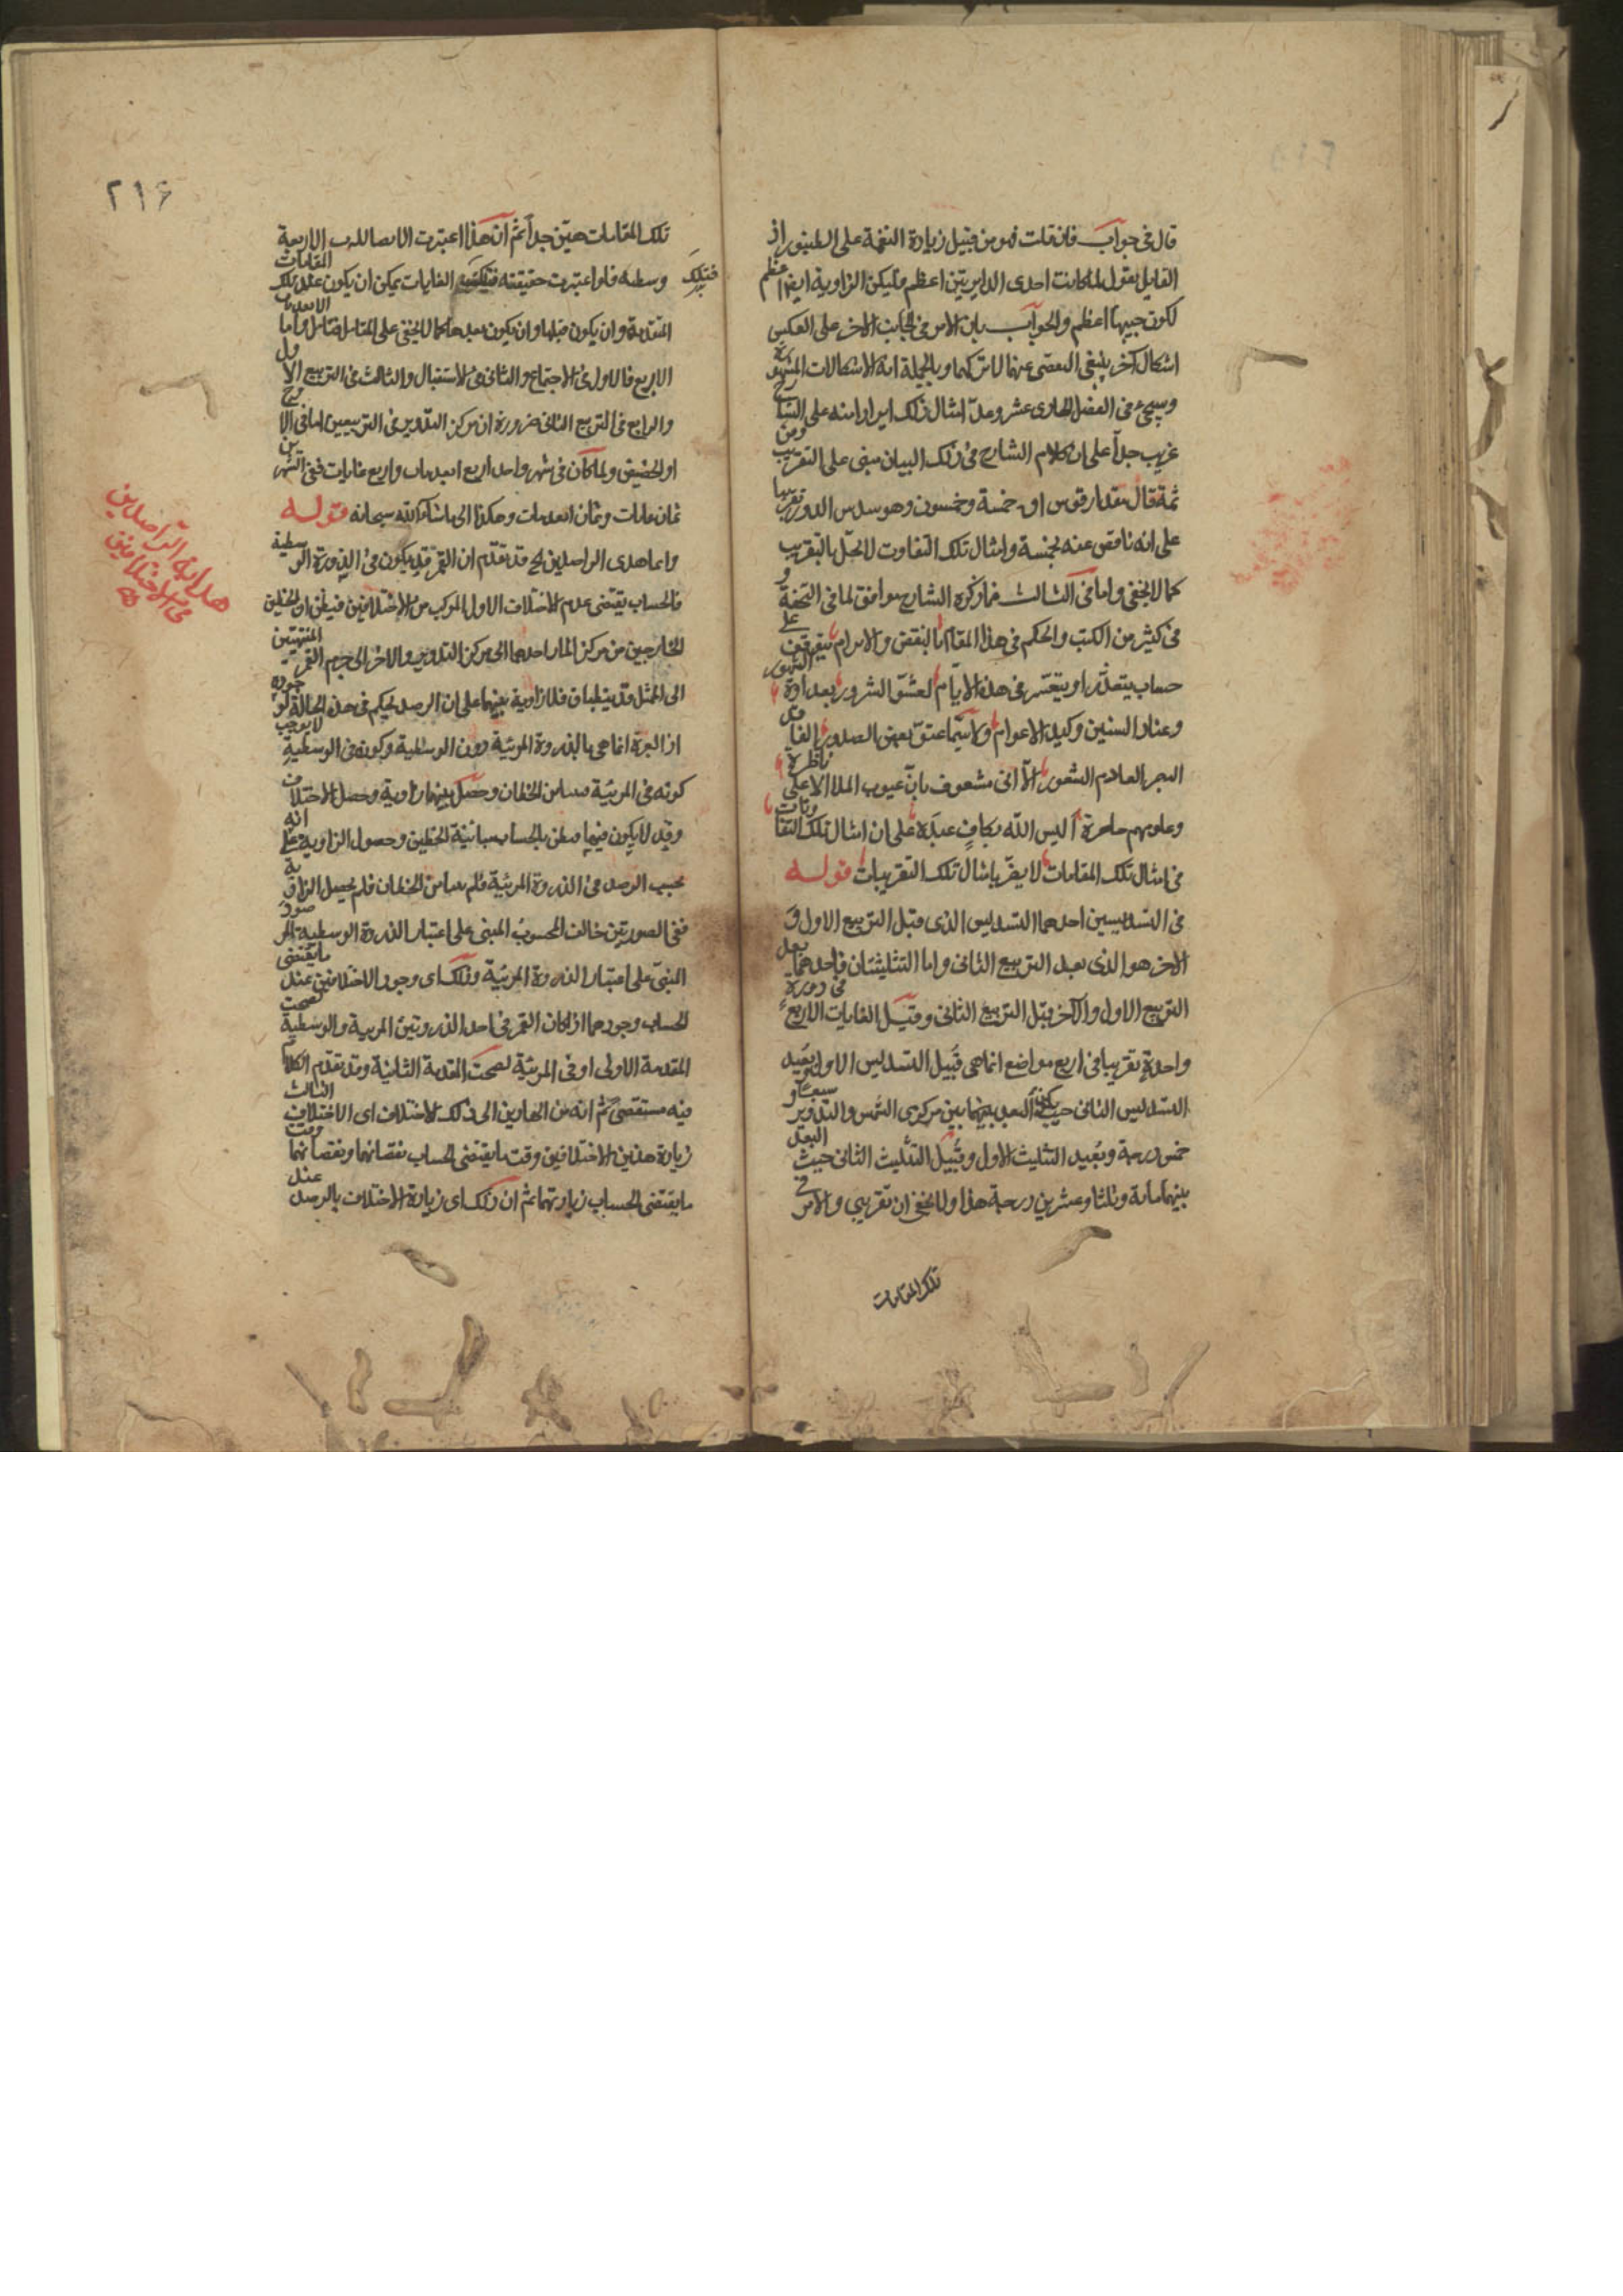 قال فى جواب فان قلت هو من قبيل زيادة النغمة على الطنبور اذ
القايل يقول لما كانت احدى الدايرتين اعظم فليكن الزاوية ايضا اعظم
لكون جيبها اعظم والجواب بان الامر فى الجانب الاخر على العكس
اشكال آخر ينبغى التفصى عنها لا تركها وبالجملة هذه الاشكالات المشهورة
وسيجئ فى الفصل الحادى عشر وعدّ امثال ذلك ايرادا منه على الشارح
غريب جدا على ان كلام الشارح فى ذلك البيان مبنى على التقريب ومن
ثمة قال بمقدار قوس اقـ خمسة وخمسون وهو سدس الدور تقريبا
على انه ناقص عنه بخمسة وامثال تلك التفاوت لا تخل بالتقريب
كما لا يخفى واما فى الثالث فما ذكره الشارح موافق لما فى التحفة و
فى كثير من الكتب والحكم فى هذا المقام بالنقض والابرام يتوقف على
حساب يتعذر او يتعسر فى هذه الايام لعشق الشرور بعداوة الشهور
وعناد السنين وكيد الاعوام ولا سيّما عتوّ بعض الصدور الفاقد
البحر العادم الشعور الا انى مشعوف بانّ عيوب الملا الاعلى ناظرة
وعلومهم حاضرة أليس الله بكافٍ عبدَه على ان امثال تلك التفاوتات
فى امثال تلك المقامات لا يضرّ بامثال تلك التقريبات قوله
فى التسديسين احدهما التسديس الذى قبل التربيع الاول و
الاخر هو الذى بعد التربيع الثانى واما التثليثان فاحدهما بعد
التربيع الاول والآخر قبل التربيع الثانى وقيل الغايات الاربع فى دورة
واحدة تقريبا فى اربع مواضع انما هى قُبيل التسديس الاول وبُعيد
التسديس الثانى حيث يكون البعد بينهما بين مركزى الشمس والتدوير سبعا و
خمسين درجة وبُعيد التثليث الاول وقُبيل التثليث الثانى حيث البعد
بينهما مائة وثلثا وعشرين درجة هذا ولا يخفى ان تقريبى والامر فى
تلك المقامات
٢١٦
تلك المقامات هين جدا ثم ان هذا اعتبرت الابعاد الاربعة
وسطية فلو اعتبرت حقيقته فتلك الغايات يمكن ان يكون عند تلك المقامات
فتلك
المتقدمة وان يكون قبلها وان يكون بعدها كما لا يخفى على المتأمل فتأمل واما الابعاد
الاربع فالاول فى الاجتماع والثانى فى الاستقبال والثالث فى التربيع الاول
والرابع فى التربيع الثانى ضرورة ان مركز التدوير فى التربيعين اما فى الاوج
او الحضيض ولما كان فى شهر واحد اربع ابعاد واربع غايات ففى الشهرين
ثمان غايات وثمان ابعاد وهكذا الى ما شاء الله سبحانه قوله
وانما هدى الراصدين الخ قد تقدّم ان القمر قد يكون فى الذروة الوسطية
فالحساب يقتضى عدم الاختلاف الاول المركب من الاختلافين فيظن ان الخطين
الخارجين من مركز الممثل احدهما الى مركز التدوير والاخر الى جرم القمر المنتهيين
الى الممثل قد ينطبقان فلا زاوية بينهما على ان الرصد يحكم فى هذه الحالة لوجوده
اذ العبرة انما هى بالذروة المرئية دون الوسطية وكونه فى الوسطية لا يوجب
كونه فى المرئية فتباين الخطان وحصل بينهما زاوية وحصل الاختلاف
وقد لا يكون فيها فيظن بالحساب مباينة الخطين وحصول الزاوية على انه
بحسب الرصد فى الذروة المرئية فلم يتباين الخطان فلم يحصل الزاوية
ففى الصورتين خالف المحسوب المبنى على اعتبار الذروة الوسطية المرصود
المبنى على اعتبار الذروة المرئية وذلك اى وجود الاختلافين عند ما يقتضى
الحساب وجودهما اذا كان القمر فى احد الذروتين المرئية والوسطية لصحت
المقدمة الاولى او فى المرئية لصحت المقدمة الثانية وقد تقدم الكلام
فيه مستقصى ثم انه من الهاديين الى ذلك الاختلاف اى الاختلاف الثالث
زيادة هذين الاختلافين وقت ما يقتضى الحساب نقصانهما ونقصانهما وقت
ما يقتضى الحساب زيادتهما ثم ان ذلك اى زيادة الاختلاف بالرصد عند
هداية الراصدين
فى الاختلافين